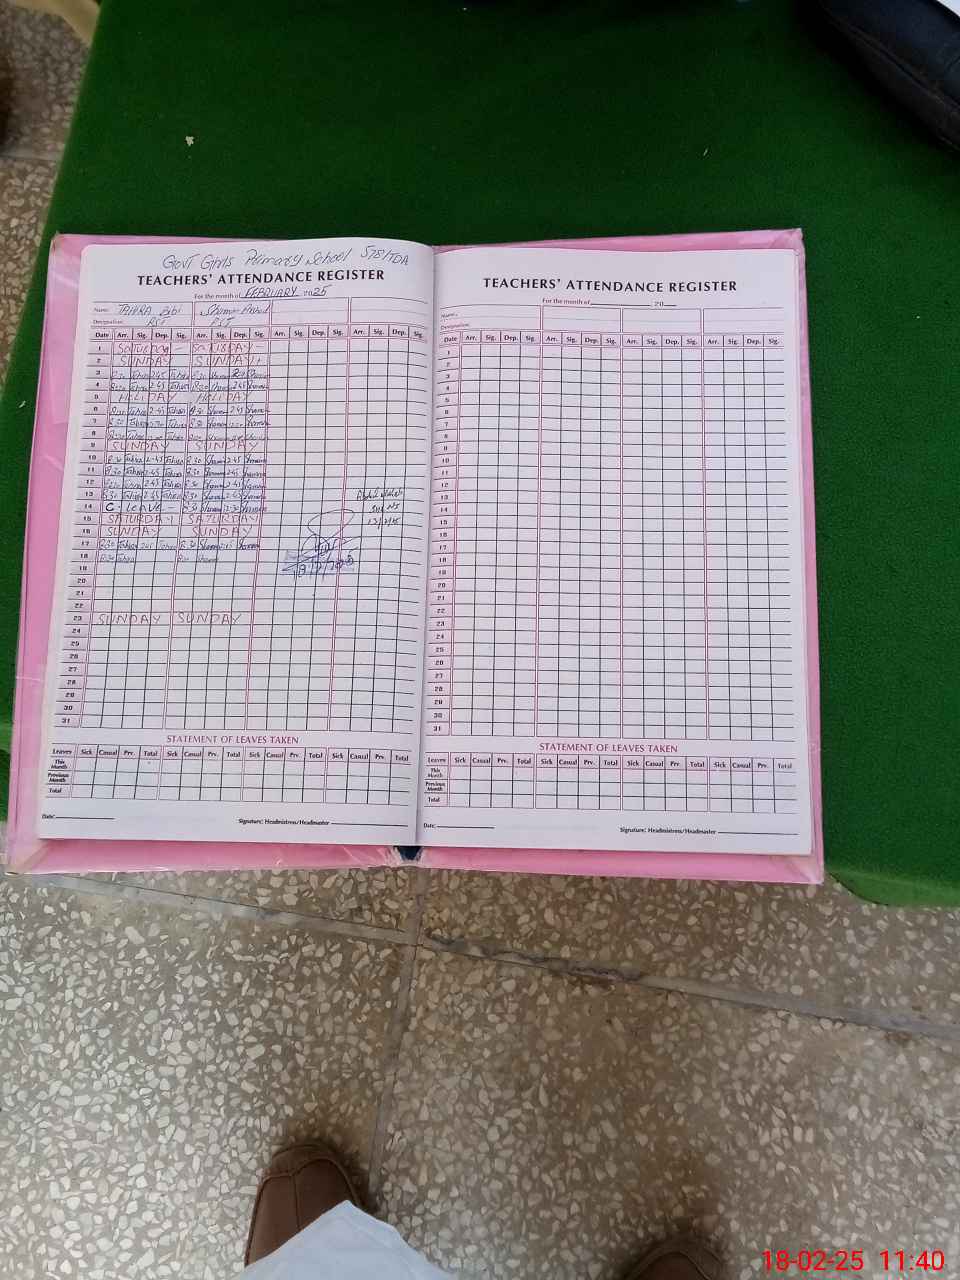 Govt Girls Primary School 578/TDA
TEACHERS' ATTENDANCE REGISTER
For the month of FEBRUARY 2025
Name: TAHIRA Bibi
Designation: PST PST
Date Arr. Sig. Dep. Sig. Arr. Sig. Dep. Sig. Arr. Sig. Dep. Sig. Arr. Sig. Dep. Sig.
1 SATURDAY - SATURDAY -
2 SUNDAY SUNDAY
3 8:30 Tahira 2:45 Tahira 8:30
4 Tahira 2:45 Tahira 2:45
5 HOLIDAY HOLIDAY
6 8:30 Tahira 2:45 Tahira 8:30 2:45
7 8:30 Tahira Tahira 8:30
8 Tahira
9 SUNDAY SUNDAY
10 8:30 Tahira 2:45 Tahira 8:30 2:45
11 8:30 Tahira 2:45 Tahira 8:30 2:45
12 8:30 Tahira 2:45 Tahira 8:30 2:45
13 8:30 Tahira 2:45 Tahira 8:30 2:45
14 C. Leave - 8:30 12:30
15 SATURDAY SATURDAY
16 SUNDAY SUNDAY
17 8:30 Tahira 2:45 Tahira 8:30 2:45
18 8:30 Tahira 8:30
18/2/2025
19
20
21
22
23 SUNDAY SUNDAY
24
25
26
27
28
29
30
31
STATEMENT OF LEAVES TAKEN
Leaves Sick Casual Prv. Total Sick Casual Prv. Total Sick Casual Prv. Total Sick Casual Prv. Total
This Month
Previous Month
Total
Date:
Signature: Headmistress/Headmaster
TEACHERS' ATTENDANCE REGISTER
For the month of 20
Name:
Designation:
Date Arr. Sig. Dep. Sig. Arr. Sig. Dep. Sig. Arr. Sig. Dep. Sig. Arr. Sig. Dep. Sig.
1
2
3
4
5
6
7
8
9
10
11
12
13
14
15
16
17
18
19
20
21
22
23
24
25
26
27
28
29
30
31
STATEMENT OF LEAVES TAKEN
Leaves Sick Casual Prv. Total Sick Casual Prv. Total Sick Casual Prv. Total Sick Casual Prv. Total
This Month
Previous Month
Total
Date:
Signature: Headmistress/Headmaster
18-02-25 11:40